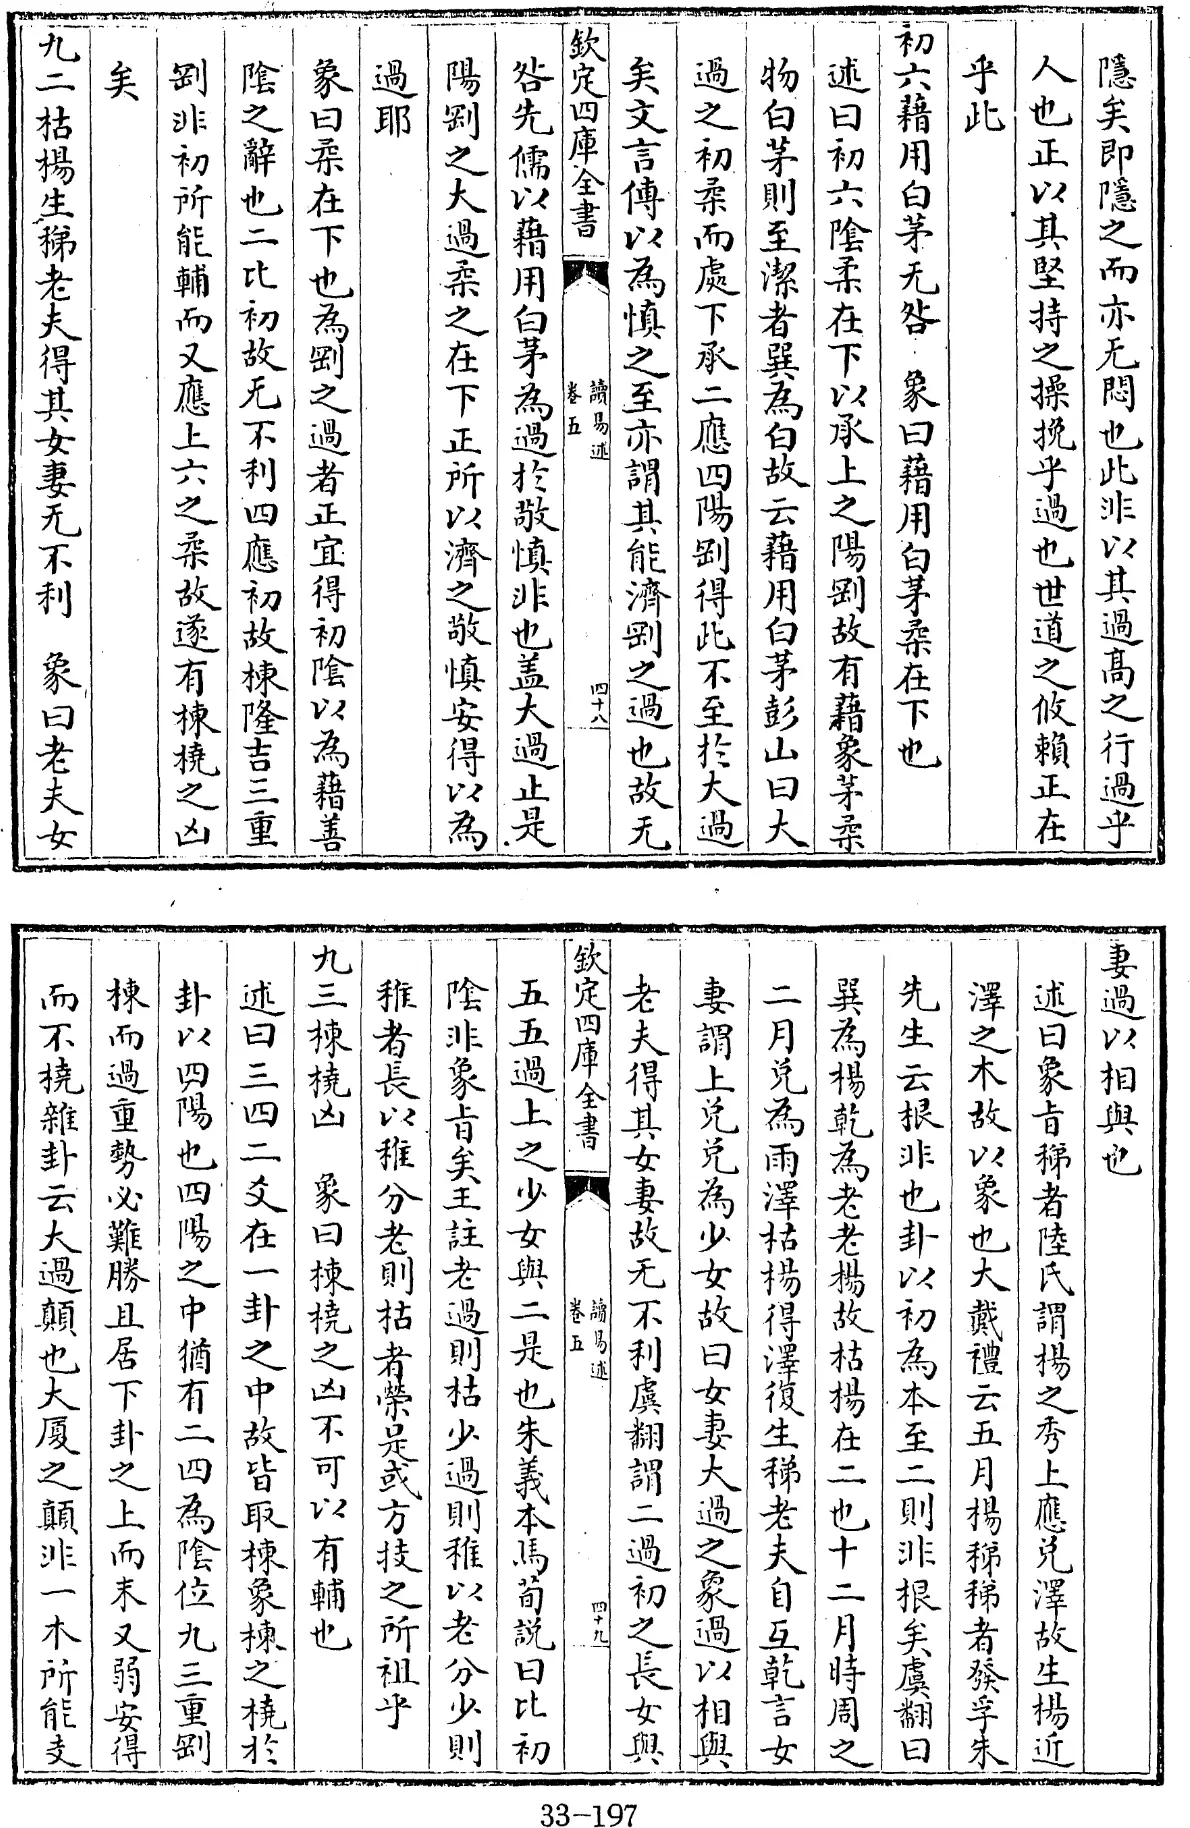 隱矣即隱之而亦无悶也此非以其過髙之行過乎
人也正以其堅持之操挽乎過也世道之攸賴正在
乎此
初六藉用白茅无咎 象曰藉用白茅柔在下也
述曰初六隂柔在下以承上之陽剛故有藉象茅柔
物白茅則至潔者巽為白故云藉用白茅彭山曰大
過之初柔而處下承二應四陽剛得此不至於大過
矣文言傳以為慎之至亦謂其能濟剛之過也故无
欽定四庫全書
讀易述
卷五
四十八
咎先儒以藉用白茅為過於敬慎非也盖大過止是
陽剛之大過柔之在下正所以濟之敬慎安得以為
過耶
象曰柔在下也為剛之過者正宜得初隂以為藉善
隂之辭也二比初故无不利四應初故棟隆吉三重
剛非初所能輔而又應上六之柔故遂有棟橈之凶
矣
九二枯楊生稊老夫得其女妻无不利 象曰老夫女
妻過以相與也
述曰象旨稊者陸氏謂楊之秀上應兊澤故生楊近
澤之木故以象也大戴禮云五月楊稊稊者發孚朱
先生云根非也卦以初為本至二則非根矣虞翻曰
巽為楊乾為老老楊故枯楊在二也十二月時周之
二月兊為雨澤枯楊得澤復生稊老夫自互乾言女
妻謂上兊兊為少女故曰女妻大過之象過以相與
老夫得其女妻故无不利虞翻謂二過初之長女與
欽定四庫全書
讀易述
卷五
四十九
五五過上之少女與二是也朱義本馬荀説曰比初
隂非象旨矣王註老過則枯少過則稚以老分少則
稚者長以稚分老則枯者榮是或方技之所祖乎
九三棟橈凶 象曰棟橈之凶不可以有輔也
述曰三四二爻在一卦之中故皆取棟象棟之橈於
卦以四陽也四陽之中猶有二四為隂位九三重剛
棟而過重勢必難勝且居下卦之上而末又弱安得
而不橈雜卦云大過顛也大厦之顛非一木所能支
33-197